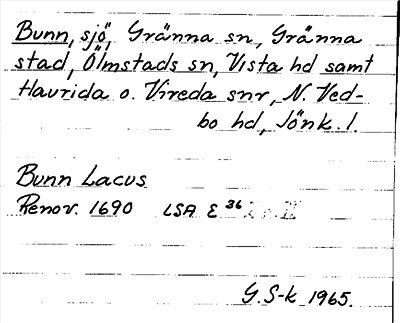 Bunn, sjö, Gränna sn, Gränna
stad, Ölmstads sn, Vista hd samt
Haurida o. Vireda snr, N. Ved-
bo hd, Jönk. l.
Bunn Lacus
Renov. 1690 LSA E 36
G. S-k 1965.